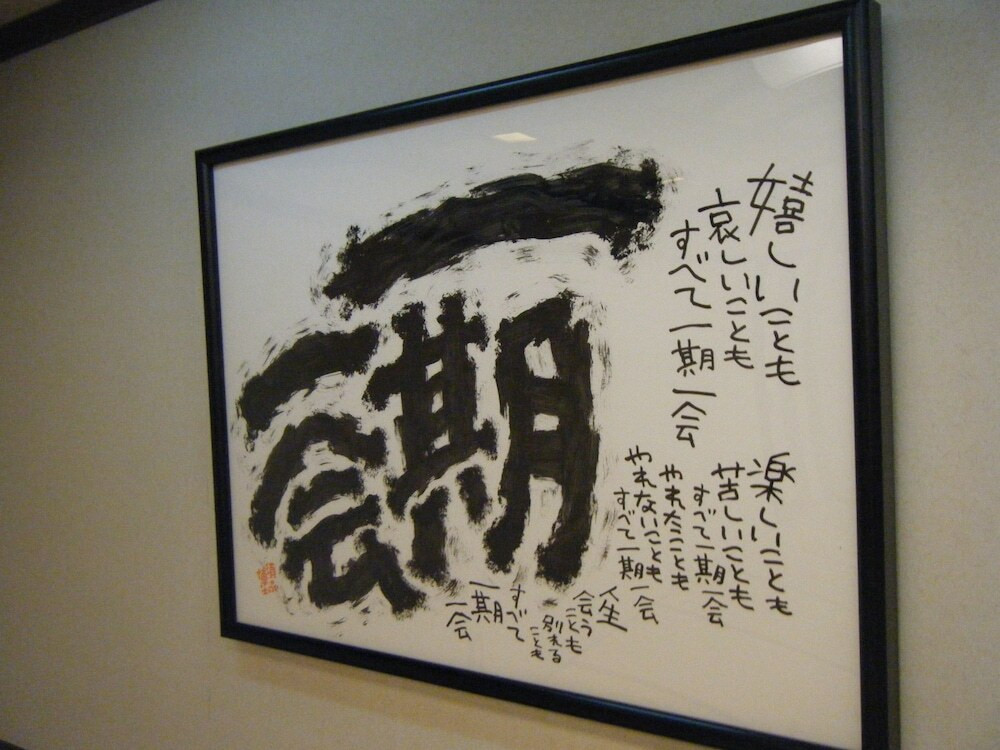 嬉しいことも
哀しいことも
すべて一期一会
楽しいことも
苦しいことも
すべて一期一会
やれたことも
やれないことも
すべて一期一会
人生
会う
ことも
別れる
ことも
すべて
一期
一会
一期一会